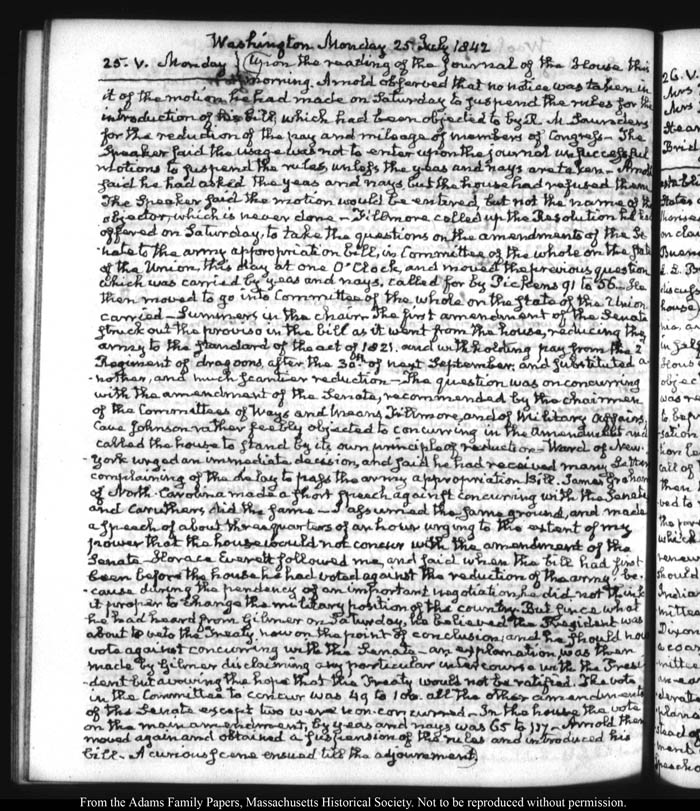 Washington Monday 25 July 1842
25. V. Monday
Upon the reading of the Journal of the House this
morning. Arnold observed that no notice was taken in
it of the motion he had made on Saturday to suspend the rules for the
introduction of his bill, which had been objected to by R. M. Saunders
for the reduction of the pay and mileage of members of Congress — The
Speaker said the usage was not to enter upon the journal unsuccessful
motions to suspend the rules, unless the yeas and nays are taken — Arnold
said he had asked the yeas and nays, but the house had refused them
The Speaker said the motion would be entered, but not the name of the
objector, which is never done — Fillmore called up the Resolution he had
offered on Saturday, to take the questions on the amendments of the Se
-nate to the army appropriation bill, in Committee of the whole on the state
of the Union, this day at one O'Clock, and moved the previous question
which was carried by yeas and nays, called for by Pickens 91 to 56. He
then moved to go into Committee of the whole on the state of the Union
carried — Summers in the chair. The first amendment of the Senate
struck out the proviso in the bill as it went from the house, reducing the
army to the standard of the act of 1821. and withholding pay from the 2d
Regiment of dragoons, after the 30th of next September, and substituted a
-nother, and much scantier reduction — The question was on concurring
with the amendment of the Senate, recommended by the chairmen
of the Committees of Ways and Means, Fillmore, and of Military Affairs,
Cave Johnson rather feebly objected to concurring in the amendment and
called the house to stand by its own principle of reduction — Ward of New
-York urged an immediate decision, and said he had received many Letters
complaining of the delay to pass the army appropriation Bill. James Graham
of North-Carolina made a short speech against concurring with the Senate
and Caruthers did the same — I assumed the same ground, and made
a speech of about three quarters of an hour urging to the extent of my
power that the house would not concur with the amendment of the
Senate — Horace Everett followed me, and said when the bill had first
been before the house, he had voted against the reduction of the army, be
-cause during the pendency of an important negotiation, he did not think
it proper to change the military position of the country. But since what
he had heard from Gilmer on Saturday, he believed the President was
about to veto the Treaty, now on the point of conclusion, and he should now
vote against concurring with the Senate — an explanation was then
made by Gilmer disclaiming any particular intercourse with the Presi
-dent but avowing the hope that the Treaty would not be ratified. The vote
in the Committee to concur was 49 to 106. all the other amendments
of the Senate except two were non-concurred — In the house the vote
on the main amendment, by yeas and nays was 65 to 117 — Arnold then
moved again and obtained a suspension of the rules and introduced his
bill — A curious scene ensued till the adjournment
From the Adams Family Papers, Massachusetts Historical Society. Not to be reproduced without permission.